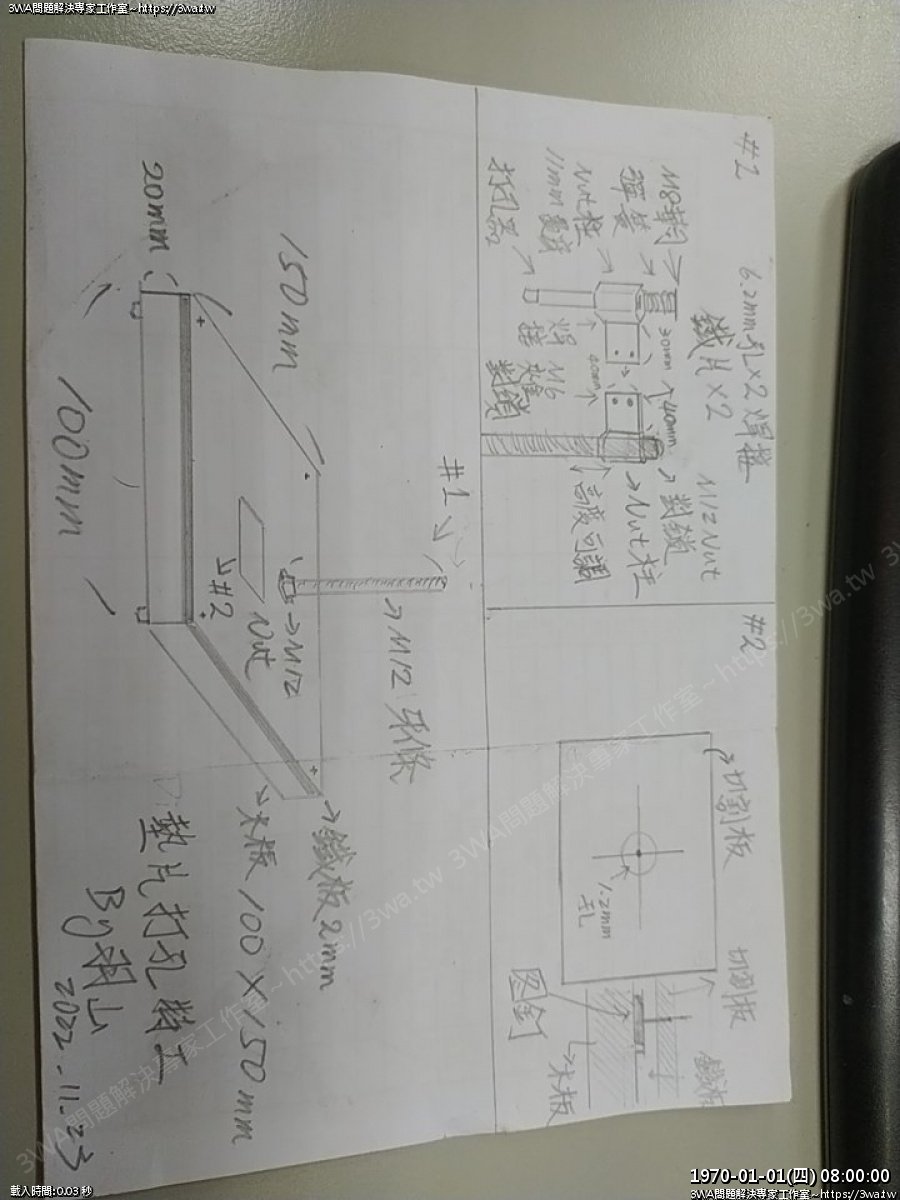 3WA問題解決專家工作室~https://3wa.tw
#1
6.2mm孔×2 焊接
鐵片×2
M12 Nut
M8
彈簧
Nut柱
11mm
打孔器
30mm
40mm
焊接
M6
對鎖
對鎖
Nut柱
高度可調
#2
切割板
1.2mm
孔
切割板
鐵板
圖釘
木板
20mm
150mm
100mm
#1
M12 牙條
M12
Nut
#2
鐵板2mm
木板 100×150mm
墊片打孔對工
By 羽山
2022.11.23
3WA問題解決專家工作室~https://3wa.tw
1970-01-01(四) 08:00:00
載入時間:0.03 秒
3WA問題解決專家工作室~https://3wa.tw